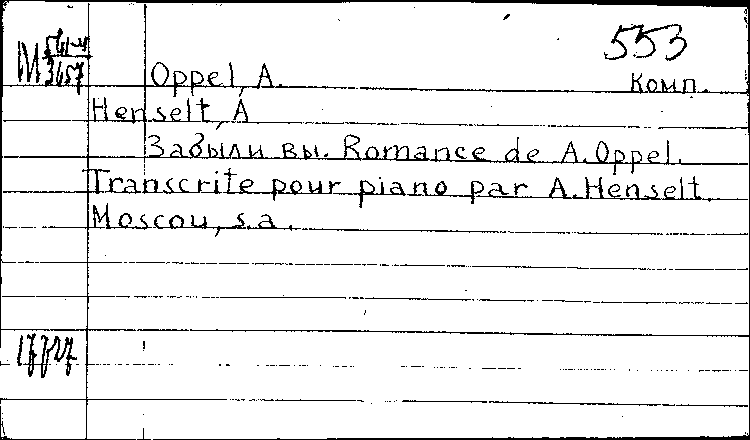 553
М 561-4
3657
Oppel, A.
Комп.
Henselt, A
Забыли вы. Romance de A. Oppel.
Transcrite pour piano par A. Henselt.
Moscou, s.a.